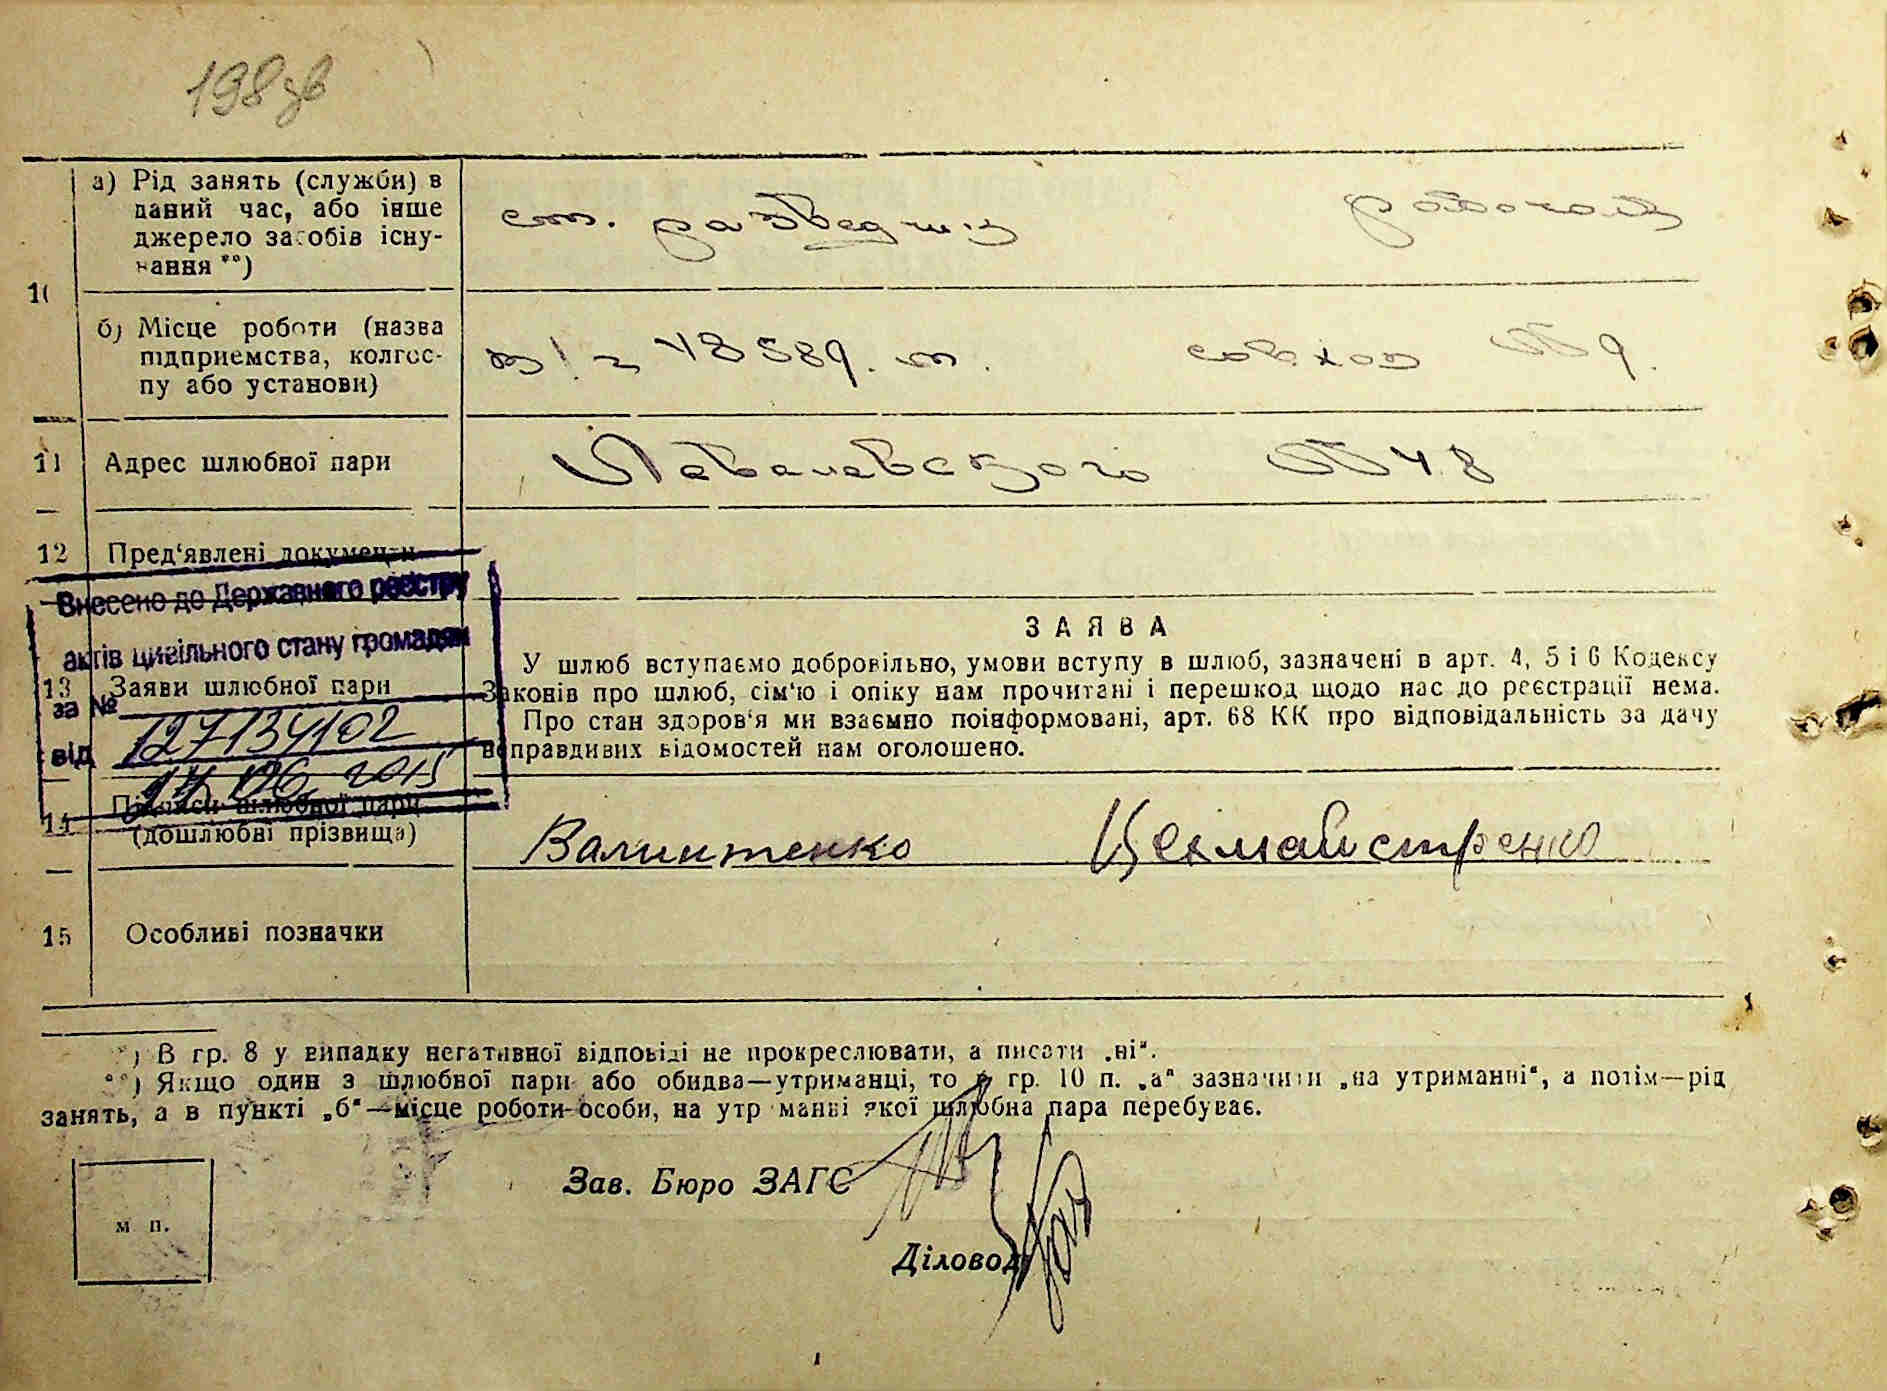 198 зв
10
а) Рід занять (служби) в
даний час, або інше
джерело засобів існу-
вання **)
ст. разведчик
рабочая
б) Місце роботи (назва
підприємства, колгос-
пу або установи)
48589.
совхоз № 9.
11 Адрес шлюбної пари
Леваневского № 48
12 Пред‘явлені документи
Внесено до Державного реєстру
актів цивільного стану громадян
за №
127134102
від
2015
ЗАЯВА
13 Заяви шлюбної пари
У шлюб вступаємо добровільно, умови вступу в шлюб, зазначені в арт. 4, 5 і 6 Кодексу
Законів про шлюб, сім‘ю і опіку нам прочитані і перешкод щодо нас до реєстрації нема.
Про стан здоров‘я ми взаємно поінформовані, арт. 68 КК про відповідальність за дачу
неправдивих відомостей нам оголошено.
14 Підписи шлюбної пари
(дошлюбні прізвища)
Цехмайстренко
15 Особливі позначки
*) В гр. 8 у випадку негативної відповіді не прокреслювати, а писати „ні“.
**) Якщо один з шлюбної пари або обидва—утриманці, то в гр. 10 п. „а“ зазначити „на утриманні“, а потім—рід
занять, а в пункті „б“—місце роботи особи, на утриманні якої шлюбна пара перебуває.
Зав. Бюро ЗАГС
м п.
Діловод